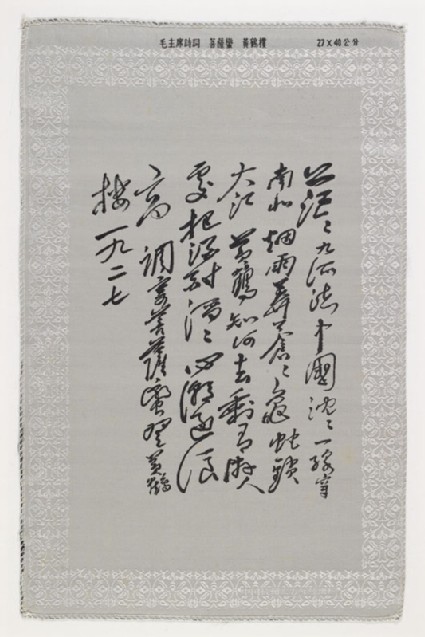 毛主席詩詞 菩薩蠻 黃鶴樓 27 X 40 公分
茫〻九派流中國沈〻一線穿
南北烟雨莽蒼〻龜蛇鎖
大江黃鶴知何去剩有游人
處把酒酹滔〻心潮逐浪
高 調寄菩薩蠻登黃鶴
樓 一九二七